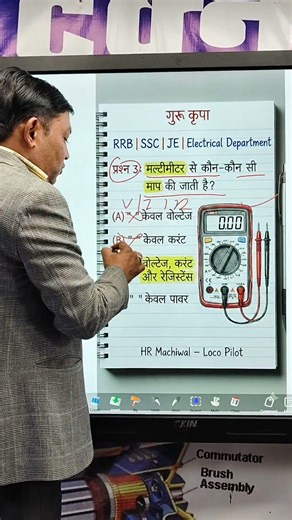 गुरू कृपा
RRB | SSC | JE | Electrical Department
प्रश्न 3: मल्टीमीटर से कौन-कौन सी
माप की जाती है?
V | I | R
(A) " " केवल वोल्टेज
(B) " " केवल करंट
वोल्टेज, करंट
और रेजिस्टेंस
" " केवल पावर
0.00
HR Machiwal – Loco Pilot
Commutator
Brush
Assembly